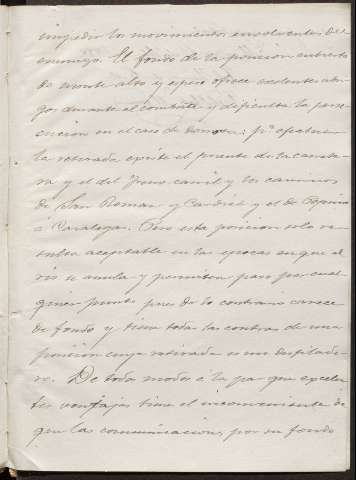 impedir los movimientos envolventes del
enemigo. El fondo de la posicion cubierto
de monte alto y espeso ofrece excelentes abri-
gos durante el combate y dificulta la perse-
cucion en el caso de derrota; pª efectuar
la retirada existe el puente de la carrete-
ra y el del ferro-carril y los caminos
de San Roman y y el de
á Pero esta posicion solo re-
sulta aceptable en las épocas en que el
rio se anula y permiten paso por cual-
quier punto pues de lo contrario carece
de fondo y tiene todas las contras de una
posicion cuya retirada es un desfilade-
ro. De todos modos á la par que excelen-
tes ventajas tiene el inconveniente de
que las comunicaciones por su fondo